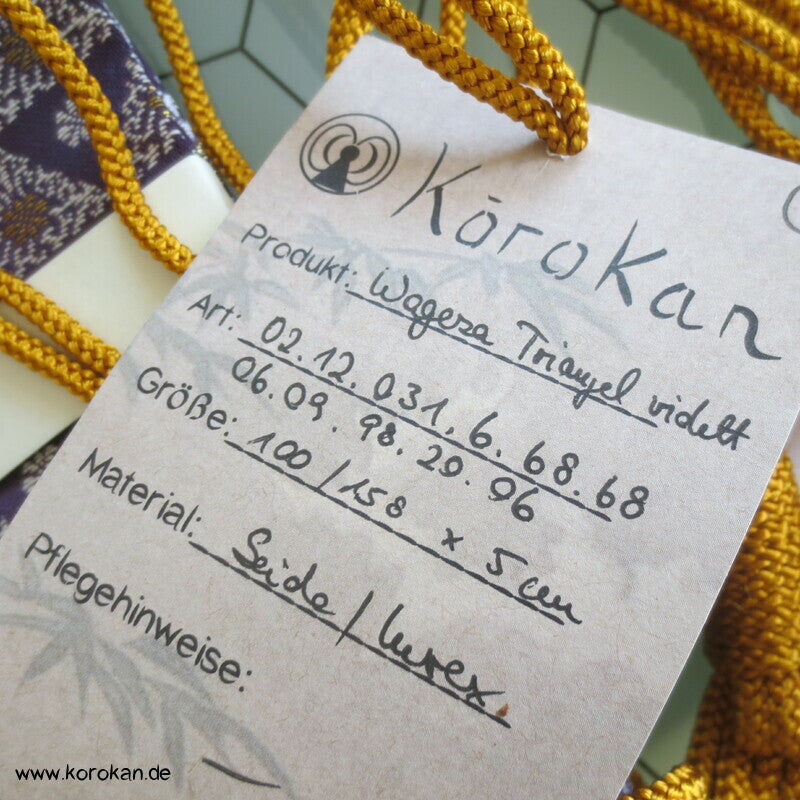 KōroKan
Produkt: Wagesa Triangel violett
Art: 02.12.031.6.68.68
06.09.98.20.06
Größe: 100/158 x 5 cm
Material: Seide/Lurex.
Pflegehinweise:
—
www.korokan.de